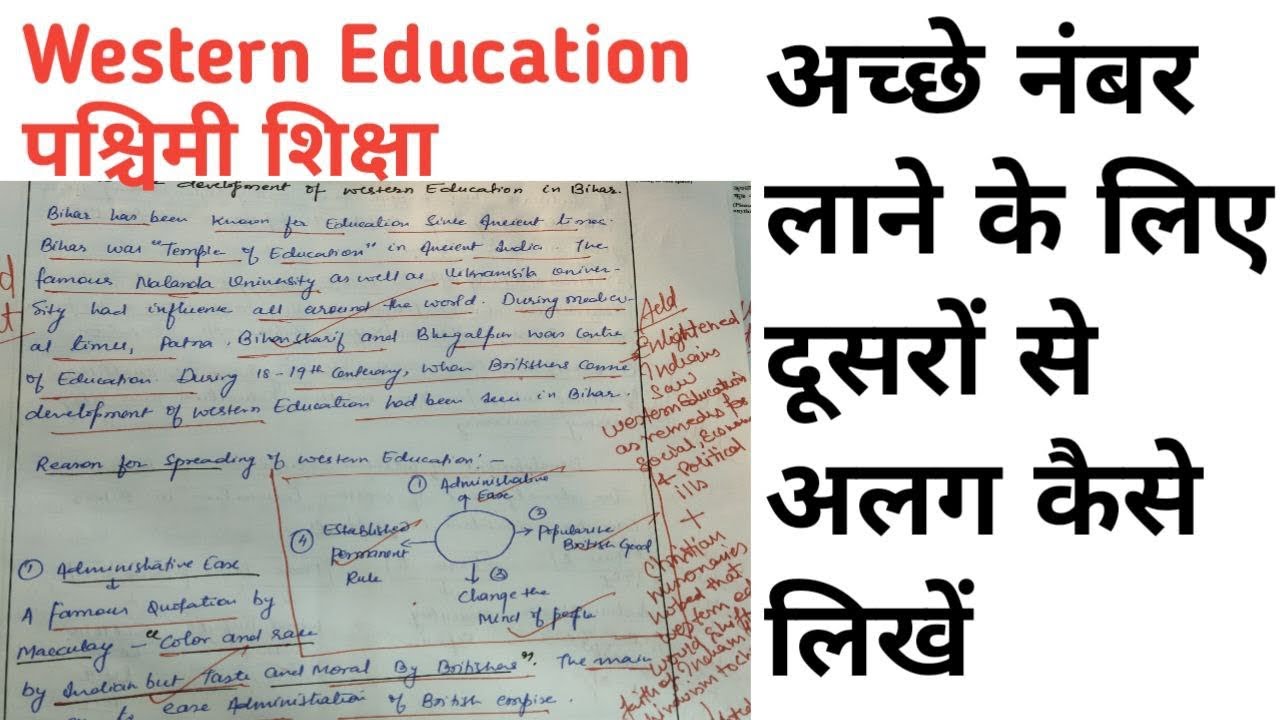 Western Education
पश्चिमी शिक्षा
अच्छे नंबर
लाने के लिए
दूसरों से
अलग कैसे
लिखें
development of western Education in Bihar.
Bihar has been known for Education Since Ancient times.
Bihar was "Temple of Education" in Ancient India. The
famous Nalanda University as well as Vikramsila Univer-
sity had influence all around the world. During mediev-
al times, Patna, Biharsharif and Bhagalpur was centre
of Education. During 18-19th Centuary, when Britishers came
development of western Education had been seen in Bihar.
Reason for Spreading of western Education:-
① Administrative
Ease
② Popularise
British Good
③
Change the
Mind of people
④ Established
Permanent
Rule
① Administrative Ease
A famous Quotation by
Maeculay - "Color and race
by Indian but Taste and Moral By Britishers". The main
ease Administration of British empire.
Add
Enlightened
Indians
saw
western Education
as remedy for
Social, Econom
& Political
ills
+
Christian
hoped that
western ed
would shift
faith of Indian